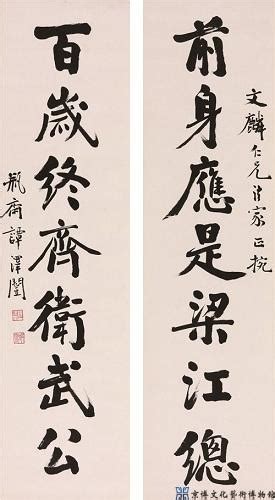 文麟仁兄方家正捥
前身應是梁江總
百歲終齊衛武公
瓶齋譚澤闓
京博文化藝術博物館